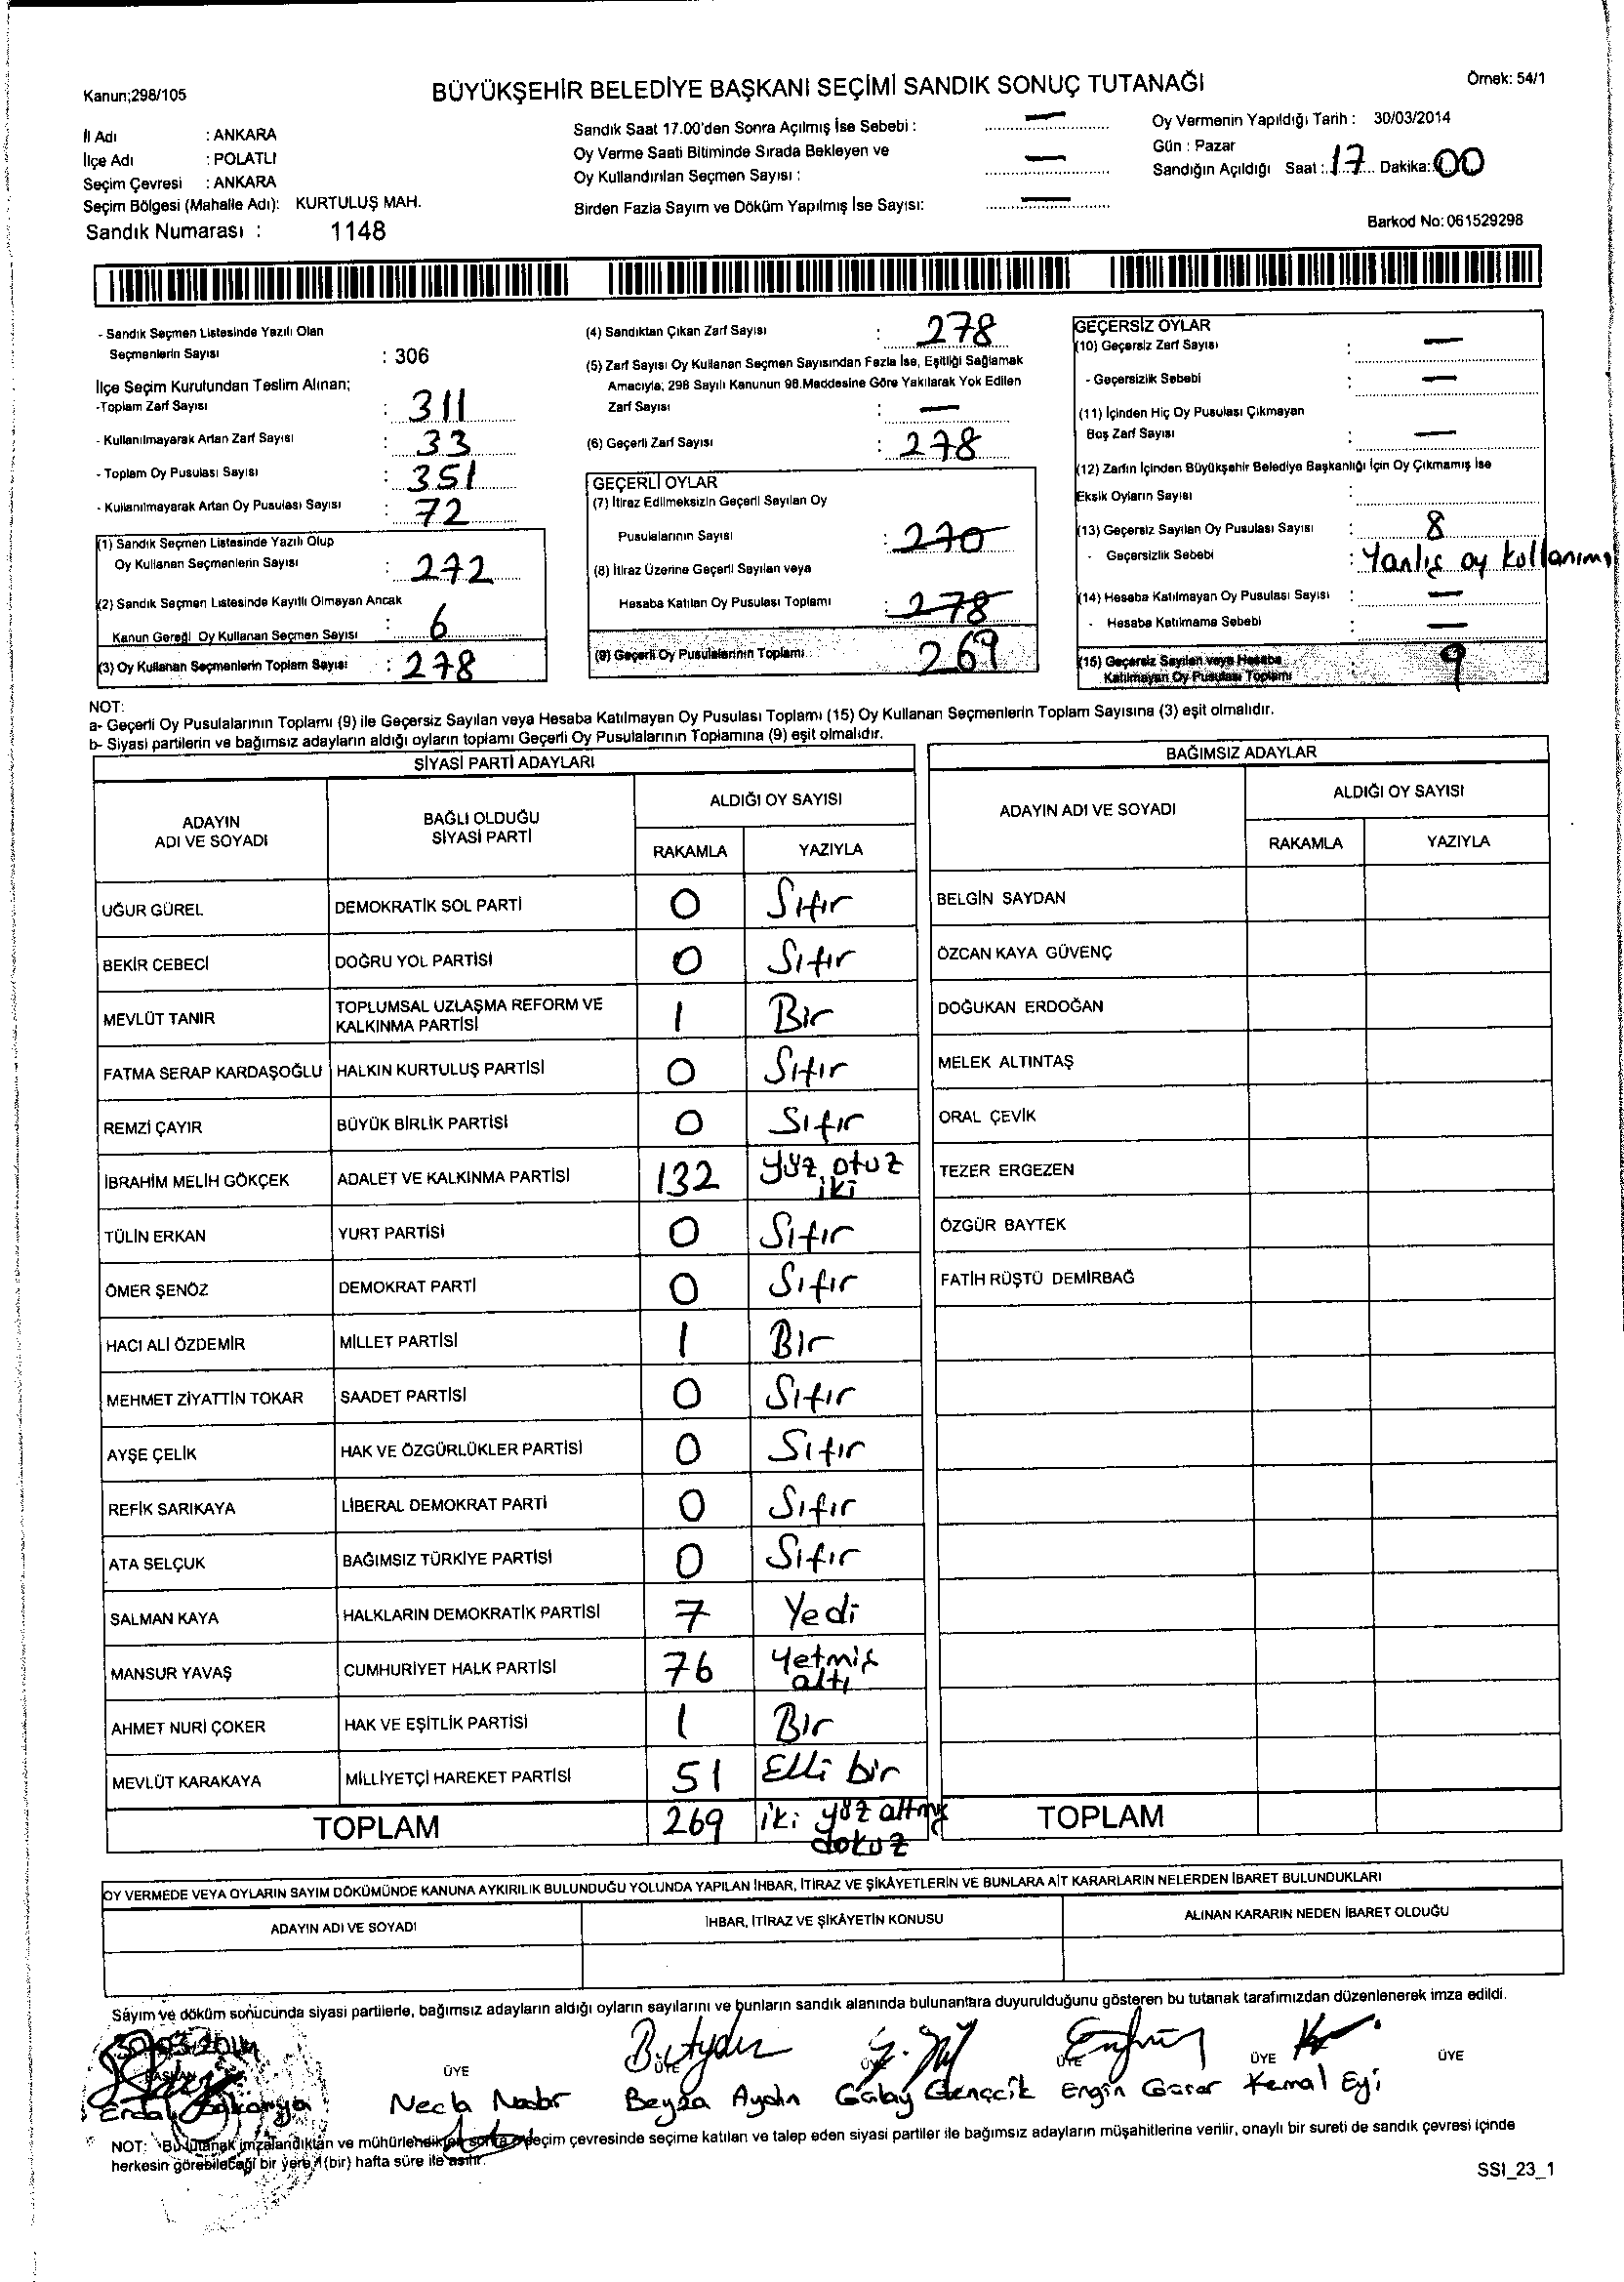 Kanun;298/105
BÜYÜKŞEHİR BELEDİYE BAŞKANI SEÇİMİ SANDIK SONUÇ TUTANAĞI
Örnek: 54/1
İl Adı : ANKARA
İlçe Adı : POLATLI
Seçim Çevresi : ANKARA
Seçim Bölgesi (Mahalle Adı): KURTULUŞ MAH.
Sandık Numarası : 1148
Sandık Saat 17.00'den Sonra Açılmış İse Sebebi : —
Oy Verme Saati Bitiminde Sırada Bekleyen ve
Oy Kullandırılan Seçmen Sayısı : —
Birden Fazla Sayım ve Döküm Yapılmış İse Sayısı: —
Oy Vermenin Yapıldığı Tarih : 30/03/2014
Gün : Pazar
Sandığın Açıldığı Saat : 17 Dakika: 00
Barkod No: 061529298
- Sandık Seçmen Listesinde Yazılı Olan
Seçmenlerin Sayısı : 306
İlçe Seçim Kurulundan Teslim Alınan;
-Toplam Zarf Sayısı : 311
- Kullanılmayarak Artan Zarf Sayısı : 33
- Toplam Oy Pusulası Sayısı : 351
- Kullanılmayarak Artan Oy Pusulası Sayısı : 72
(1) Sandık Seçmen Listesinde Yazılı Olup
Oy Kullanan Seçmenlerin Sayısı : 272
(2) Sandık Seçmen Listesinde Kayıtlı Olmayan Ancak
Kanun Gereği Oy Kullanan Seçmen Sayısı : 6
(3) Oy Kullanan Seçmenlerin Toplam Sayısı : 278
(4) Sandıktan Çıkan Zarf Sayısı : 278
(5) Zarf Sayısı Oy Kullanan Seçmen Sayısından Fazla İse, Eşitliği Sağlamak
Amacıyla; 298 Sayılı Kanunun 98.Maddesine Göre Yakılarak Yok Edilen
Zarf Sayısı : —
(6) Geçerli Zarf Sayısı : 278
GEÇERLİ OYLAR
(7) İtiraz Edilmeksizin Geçerli Sayılan Oy
Pusulalarının Sayısı : 270
(8) İtiraz Üzerine Geçerli Sayılan veya
Hesaba Katılan Oy Pusulası Toplamı : 278
(9) Geçerli Oy Pusulalarının Toplamı 269
GEÇERSİZ OYLAR
(10) Geçersiz Zarf Sayısı : —
- Geçersizlik Sebebi : —
(11) İçinden Hiç Oy Pusulası Çıkmayan
Boş Zarf Sayısı : —
(12) Zarfın İçinden Büyükşehir Belediye Başkanlığı İçin Oy Çıkmamış İse
Eksik Oyların Sayısı :
(13) Geçersiz Sayılan Oy Pusulası Sayısı : 8
- Geçersizlik Sebebi : Yanlış oy kullanımı
(14) Hesaba Katılmayan Oy Pusulası Sayısı : —
- Hesaba Katılmama Sebebi : —
(15) Geçersiz Sayılan veya Hesaba
Katılmayan Oy Pusulası Toplamı : 9
NOT:
a- Geçerli Oy Pusulalarının Toplamı (9) ile Geçersiz Sayılan veya Hesaba Katılmayan Oy Pusulası Toplamı (15) Oy Kullanan Seçmenlerin Toplam Sayısına (3) eşit olmalıdır.
b- Siyasi partilerin ve bağımsız adayların aldığı oyların toplamı Geçerli Oy Pusulalarının Toplamına (9) eşit olmalıdır.
SİYASİ PARTİ ADAYLARI
ADAYIN ADI VE SOYADI
BAĞLI OLDUĞU SİYASİ PARTİ
ALDIĞI OY SAYISI
RAKAMLA YAZIYLA
UĞUR GÜREL DEMOKRATİK SOL PARTİ 0 Sıfır
BEKİR CEBECİ DOĞRU YOL PARTİSİ 0 Sıfır
MEVLÜT TANIR TOPLUMSAL UZLAŞMA REFORM VE KALKINMA PARTİSİ 1 Bir
FATMA SERAP KARDAŞOĞLU HALKIN KURTULUŞ PARTİSİ 0 Sıfır
REMZİ ÇAYIR BÜYÜK BİRLİK PARTİSİ 0 Sıfır
İBRAHİM MELİH GÖKÇEK ADALET VE KALKINMA PARTİSİ 132 yüz otuz iki
TÜLİN ERKAN YURT PARTİSİ 0 Sıfır
ÖMER ŞENÖZ DEMOKRAT PARTİ 0 Sıfır
HACI ALİ ÖZDEMİR MİLLET PARTİSİ 1 Bir
MEHMET ZİYATTİN TOKAR SAADET PARTİSİ 0 Sıfır
AYŞE ÇELİK HAK VE ÖZGÜRLÜKLER PARTİSİ 0 Sıfır
REFİK SARIKAYA LİBERAL DEMOKRAT PARTİ 0 Sıfır
ATA SELÇUK BAĞIMSIZ TÜRKİYE PARTİSİ 0 Sıfır
SALMAN KAYA HALKLARIN DEMOKRATİK PARTİSİ 7 Yedi
MANSUR YAVAŞ CUMHURİYET HALK PARTİSİ 76 Yetmiş altı
AHMET NURİ ÇOKER HAK VE EŞİTLİK PARTİSİ 1 Bir
MEVLÜT KARAKAYA MİLLİYETÇİ HAREKET PARTİSİ 51 Elli bir
TOPLAM 269 iki yüz altmış dokuz
BAĞIMSIZ ADAYLAR
ADAYIN ADI VE SOYADI
ALDIĞI OY SAYISI
RAKAMLA YAZIYLA
BELGİN SAYDAN
ÖZCAN KAYA GÜVENÇ
DOĞUKAN ERDOĞAN
MELEK ALTINTAŞ
ORAL ÇEVİK
TEZER ERGEZEN
ÖZGÜR BAYTEK
FATİH RÜŞTÜ DEMİRBAĞ
TOPLAM
OY VERMEDE VEYA OYLARIN SAYIM DÖKÜMÜNDE KANUNA AYKIRILIK BULUNDUĞU YOLUNDA YAPILAN İHBAR, İTİRAZ VE ŞİKÂYETLERİN VE BUNLARA AİT KARARLARIN NELERDEN İBARET BULUNDUKLARI
ADAYIN ADI VE SOYADI İHBAR, İTİRAZ VE ŞİKÂYETİN KONUSU ALINAN KARARIN NEDEN İBARET OLDUĞU
Sayım ve döküm sonucunda siyasi partilerle, bağımsız adayların aldığı oyların sayılarını ve bunların sandık alanında bulunanlara duyurulduğunu gösteren bu tutanak tarafımızdan düzenlenerek imza edildi.
30.03.2014
BAŞKAN ÜYE ÜYE ÜYE ÜYE ÜYE ÜYE
Erdal Necla Beyza Aydın Gülay Gençcik Engin Kemal Eyi
NOT: Bu tutanak imzalandıktan ve mühürlendikten sonra seçim çevresinde seçime katılan ve talep eden siyasi partiler ile bağımsız adayların müşahitlerine verilir, onaylı bir sureti de sandık çevresi içinde
herkesin görebileceği bir yere 1(bir) hafta süre ile asılır.
SSI_23_1